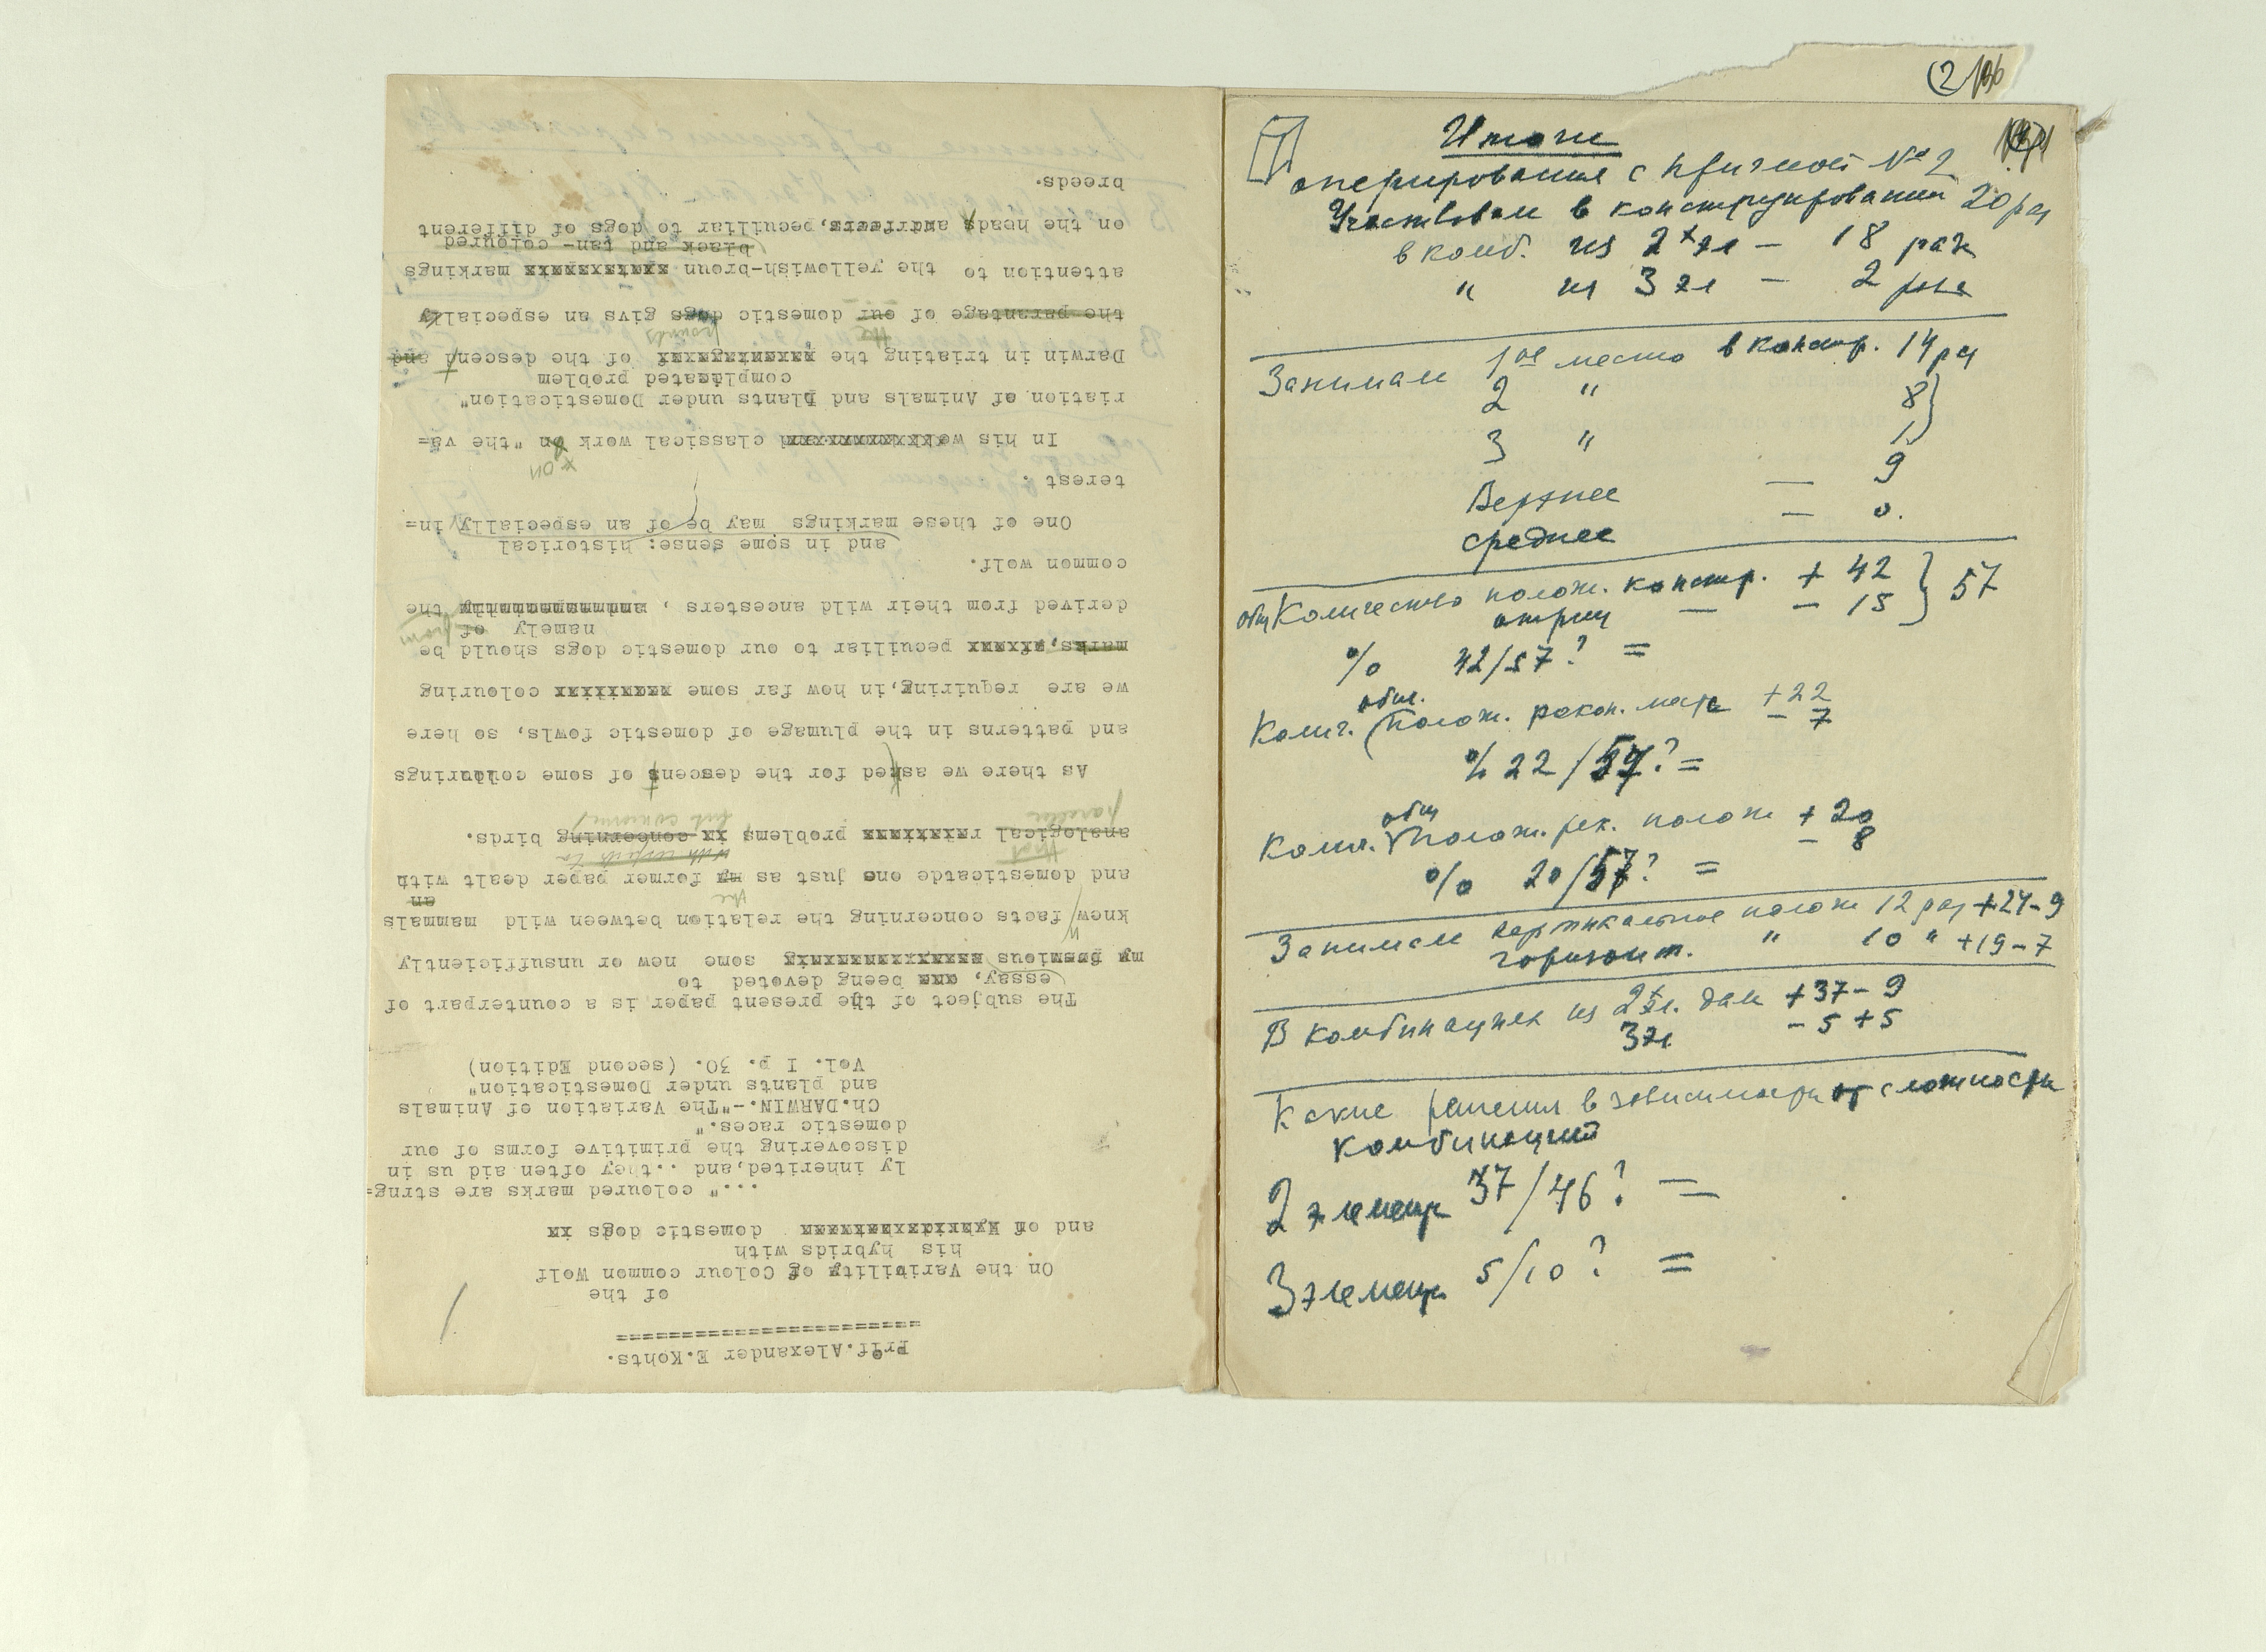 Prof. Alexander E.Kohts.
========================
of the
On the Variability of Colour common Wolf
his hybrids with
and of domestic dogs
..." coloured marks are strng=
ly inherited, and ...they often aid us in
discovering the primitive forms of our
domestic races."
Ch.DARWIN.-"The Variation of Animals
and plants under Domestication"
Vol. I p. 30. (second Edition)
The subject of the present paper is a counterpart of
essay, beeng devoted to
my some new or unsufficiently
knew facts concerning the relation between wild mammals
the an
and domesticatde one just as my former paper dealt with
that with respects to
analogical problems concerning birds.
parallel but concerning
As there we asked for the descent of some colourings
and patterns in the plumage of domestic fowls, so here
we are requiring,in how far some colouring
marks, peculiar to our domestic dogs should be
namely of from
derived from their wild ancesters , the
common wolf.
and in some sense: historical
One of these markings may be of an especially in=
terest .
on
In his classical work on "the va=
riation of Animals and plants under Domestication"
complicated problem
Darwin in triating the of the descend and
the hounds
the parantage of our domestic dogs givs an especially
attention to the yellowish-broun markings
black and tan- coloured
on the heads and feets, peculiar to dogs of different
breeds.
2
Итоги
оперирования с призмой № 2
Участвовал в конструировании 20 раз
в комб. из 2х эл — 18 раз
" из 3 эл — 2 раза
Занимал 1ое место в констр. 14 раз
2 " 8
3 " 1
Верхнее — 9
среднее — 0.
общ Количество полож. констр. + 42 } 57
отриц — — 15
% 42/57? =
общ.
Колич. полож. рекон. мест + 22
— 7
% 22/57? =
общ
Колич. полож. рек. полож + 20
— 8
% 20/57? =
Занимал вертикальное полож 12 раз +24-9
горизонт. " 10 " +19-7
В комбинациях из 2х эл. дал +37-9
3 эл. -5 +5
Какие решения в зависимости от сложности
комбинаций
2 элемент 37/46? =
3 элемент 5/10? =